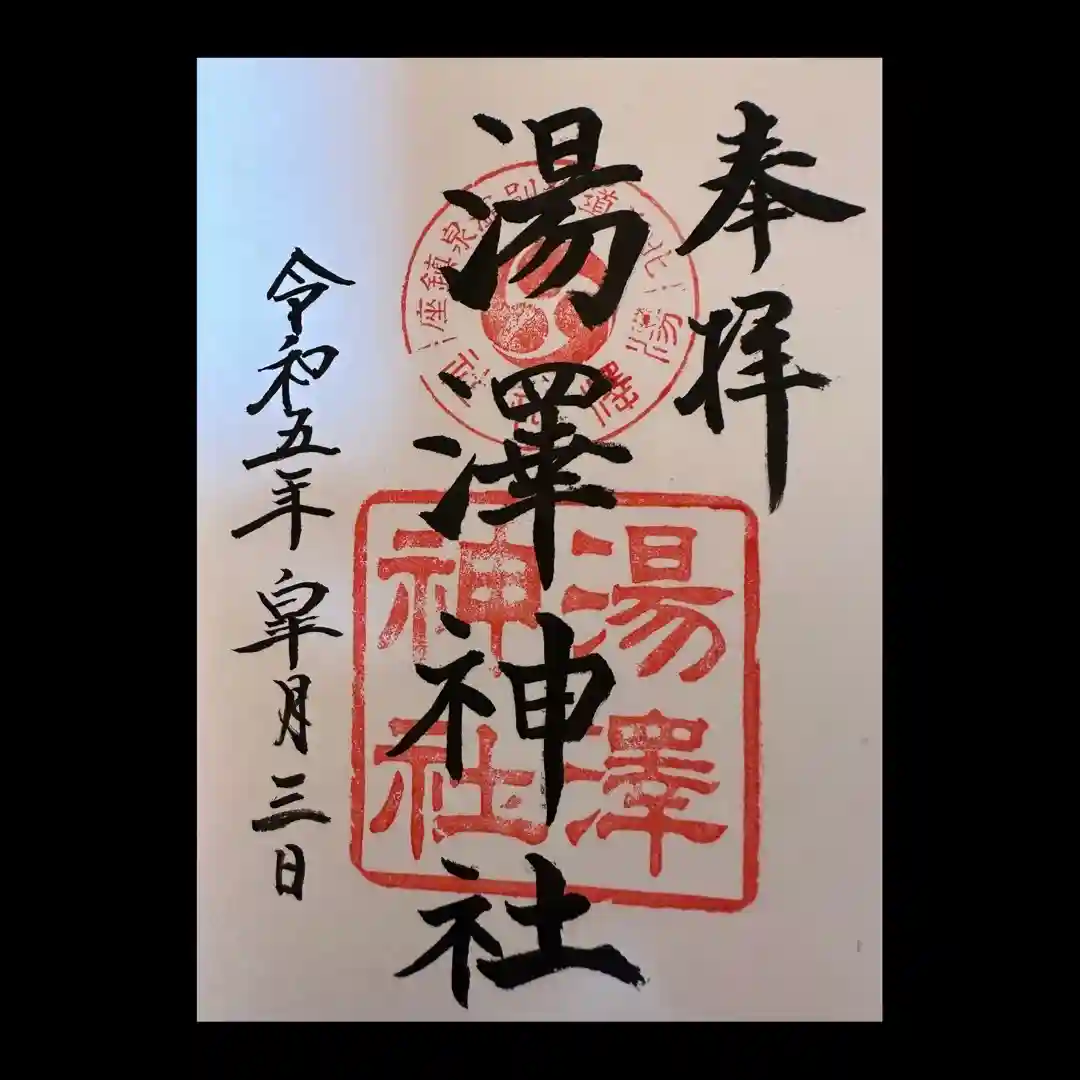 奉拝
湯澤神社
令和五年皐月三日
湯澤
神社
湯澤神社
座鎮泉